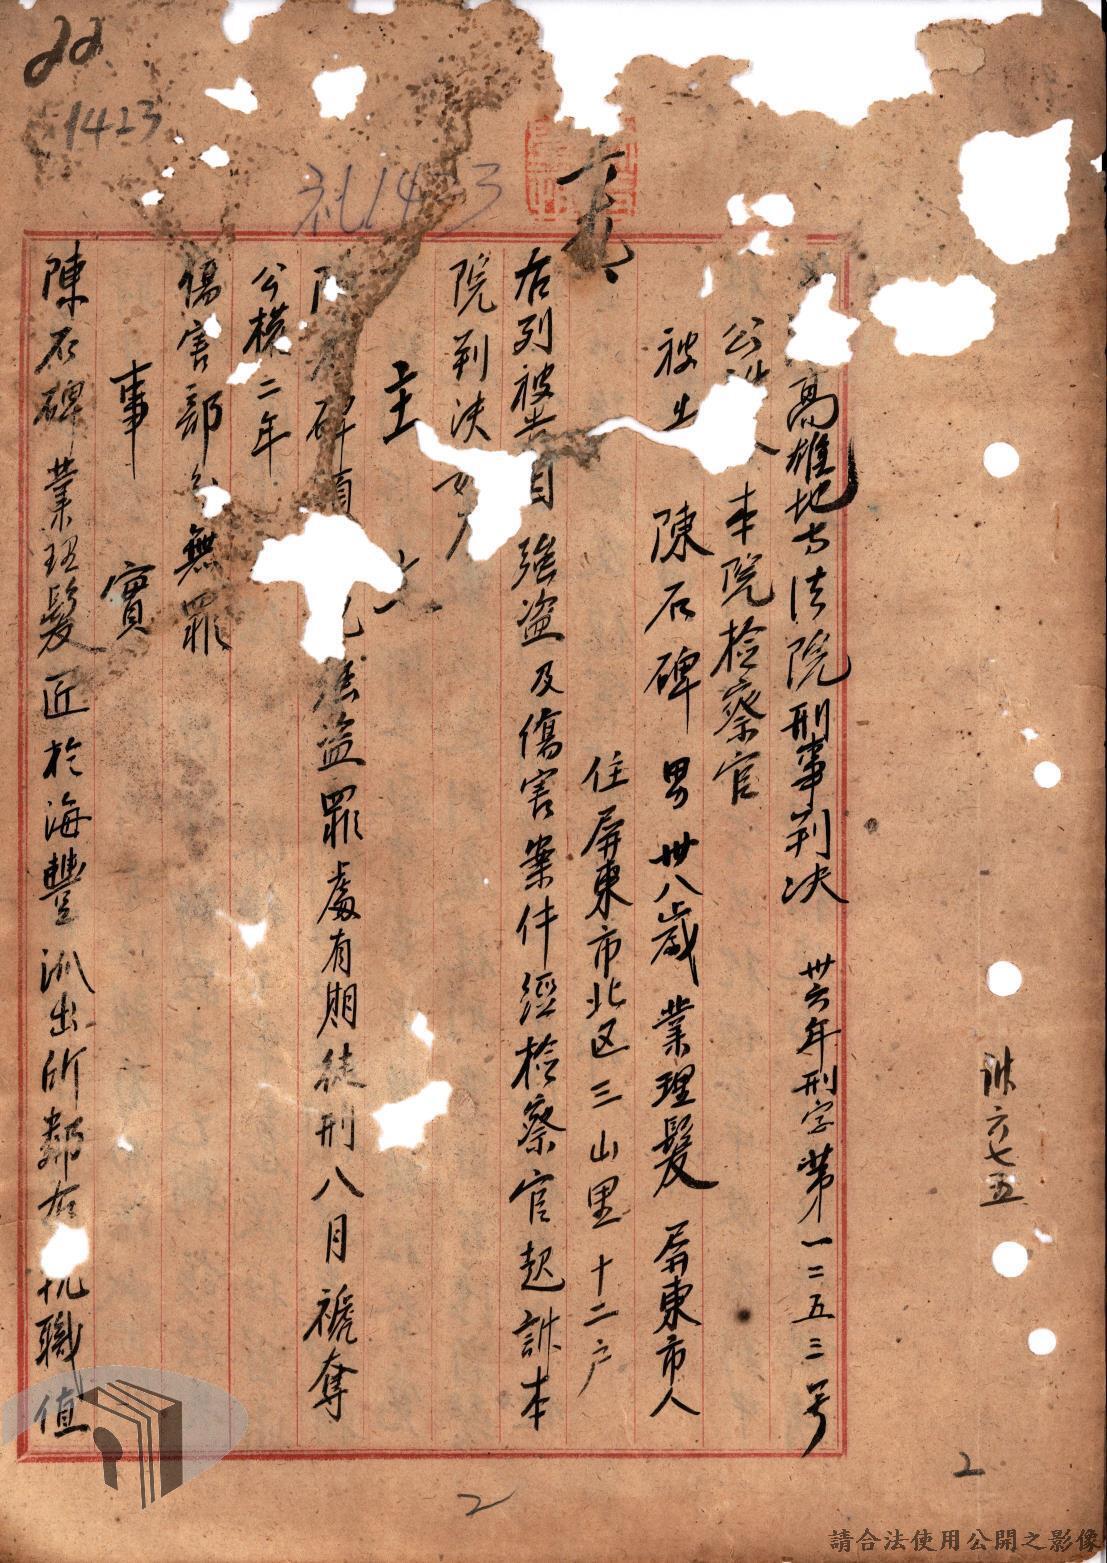 高雄地方法院刑事判決 卅六年刑字第一二五三号
公 本院检察官
被 陳石碑 男 卅八歲 業理髮 屏東市人
住屏東市北区三山里十二户
右列被 強盗及傷害案件經检察官起訴本
院判決
主 文
碑 盗罪處有期徒刑八月褫奪
公權二年
傷害部 無罪
事 實
陳石碑業理髮匠於海豐派出所鄰右 職值
訴六七五
1423
1423
2
2
請合法使用公開之影像